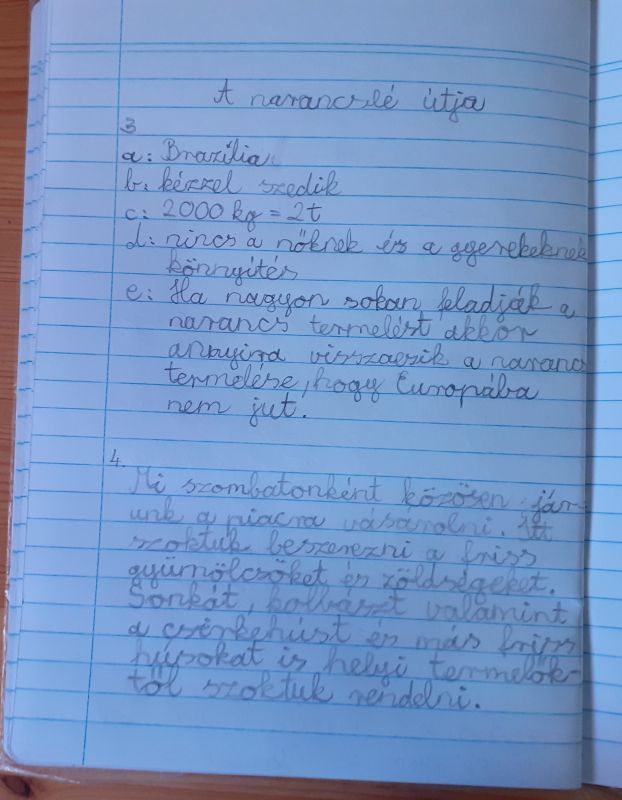 A narancslé útja
3
a: Brazília
b: kézzel szedik
c: 2000 kg = 2t
d: nincs a nőknek és a gyerekeknek
könnyítés
e: Ha nagyon sokan feladják a
narancs termelést akkor
annyira visszaesik a narancs
termelése, hogy Európába
nem jut.
4.
Mi szombatonként közösen jár-
unk a piacra vásárolni. Itt
szoktuk beszerezni a friss
gyümölcsöket és zöldségeket.
Sonkát, kolbászt valamint
a csirkehúst és más friss
húsokat is helyi termelők-
től szoktuk rendelni.